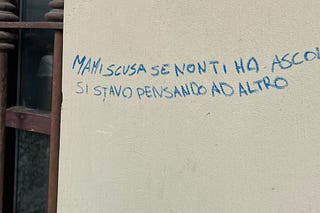 MAMI SCUSA SE NON TI HO ASCOL
SI STAVO PENSANDO AD ALTRO